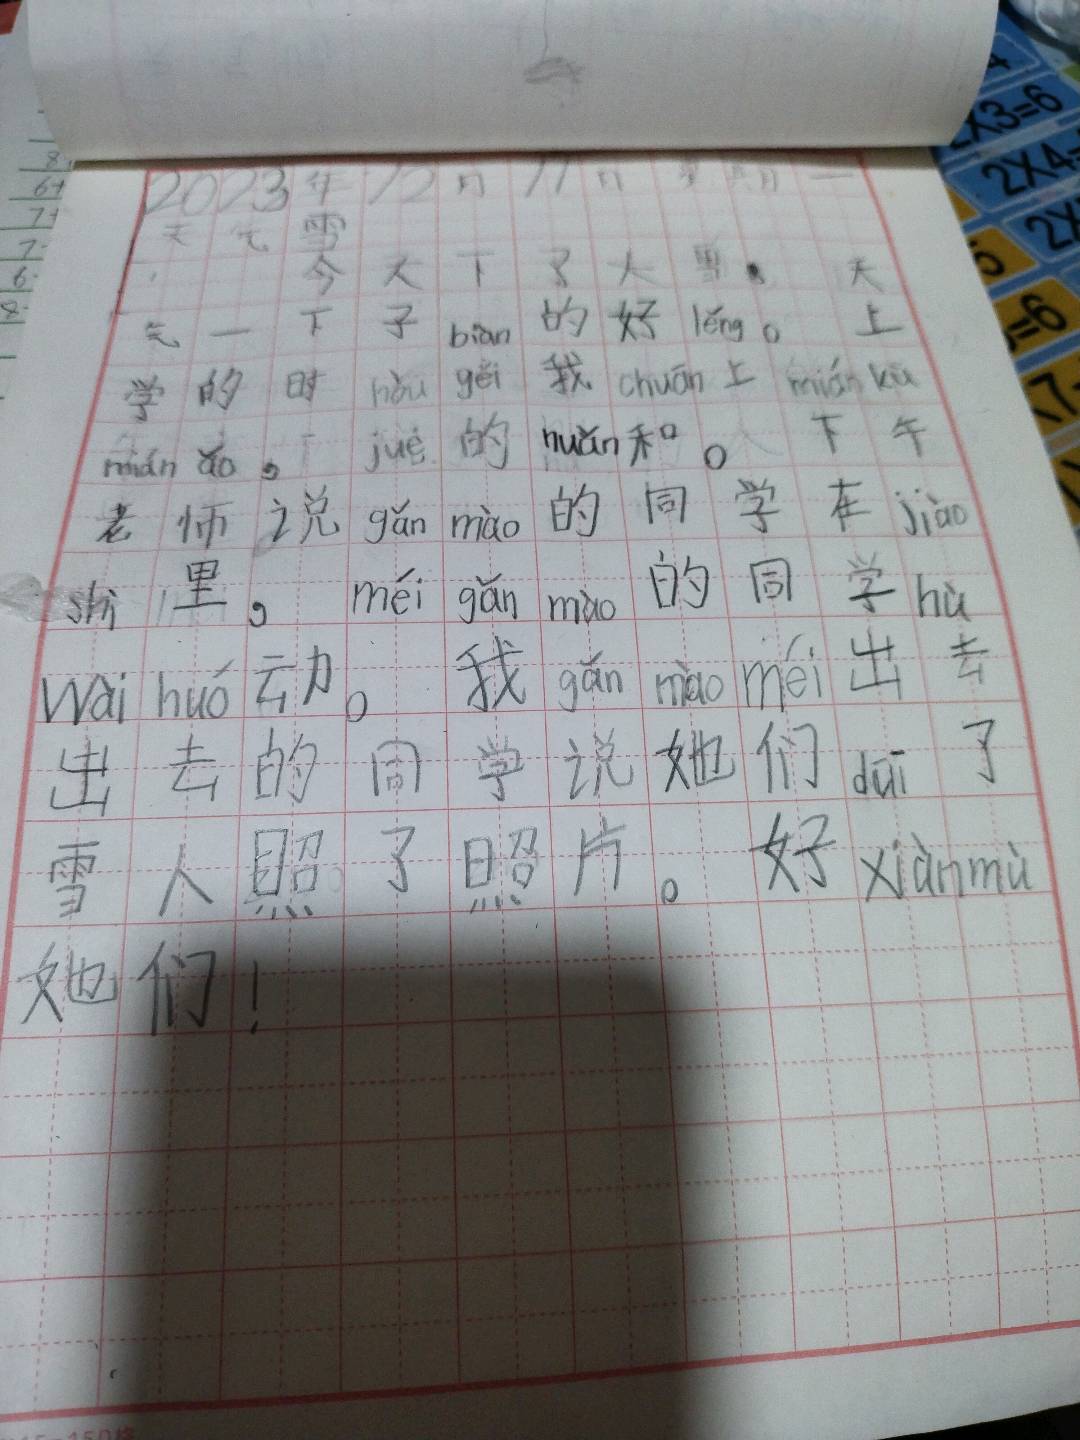 2023年12月11日 星期一
天气 雪
今天下了大雪。天
气一下子biàn的好lěng。上
学的时hòu gěi我chuān上mián kù
mián ǎo。jué的nuǎn和。下午
老师说gǎn mào的同学在jiào
shì里。méi gǎn mào的同学hù
wài huó动。我gǎn mào méi出去
出去的同学说她们duī了
雪人照了照片。好xiànmù
她们！
2X3=6
2X4=